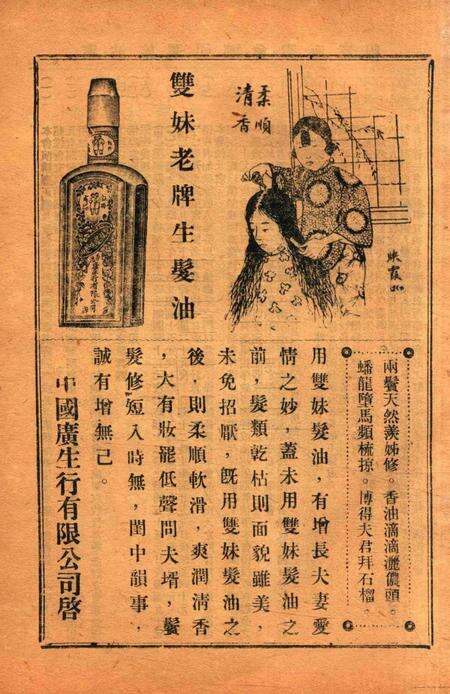 柔順
清香
映霞如
雙妹老牌生髮油
兩鬢天然羨姊修。香油滴滴灑儂頭。
蟠龍墮馬頻梳掠。博得夫君拜石榴。
用雙妹髮油，有增長夫妻愛
情之妙，蓋未用雙妹髮油之
前，髮類乾枯則面貌雖美，
未免招厭，旣用雙妹髮油之
後，則柔順軟滑，爽潤清香
，大有妝罷低聲問夫壻，鬢
髮修短入時無，閨中韻事，
誠有增無已。
中國廣生行有限公司啓